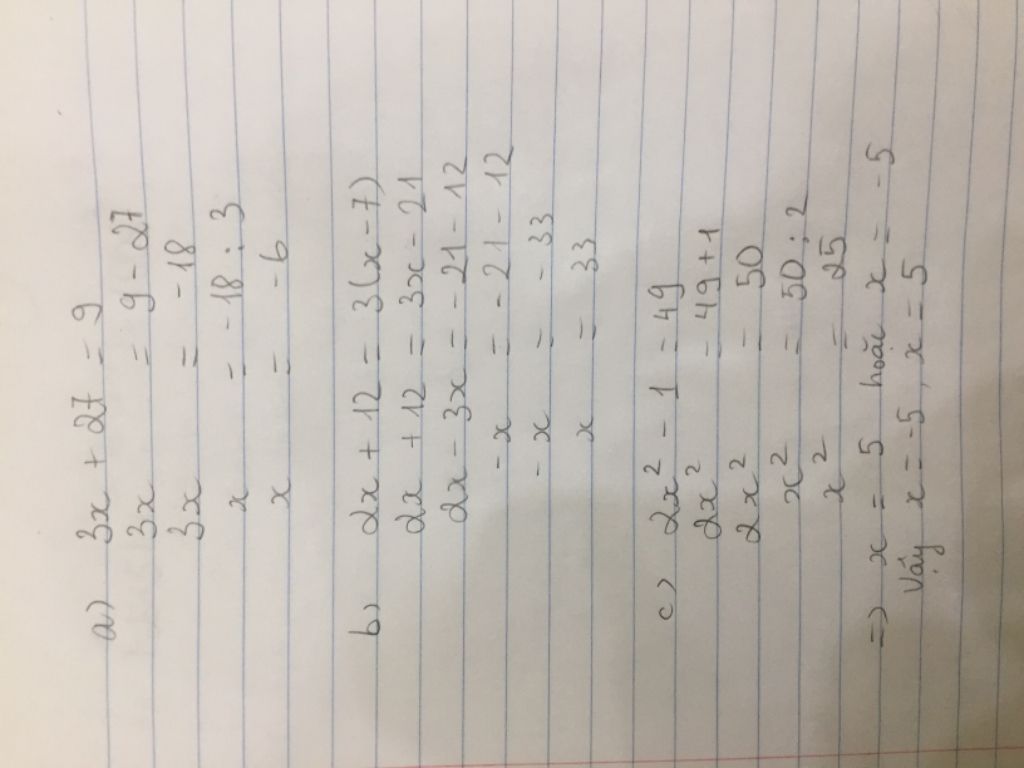 a) 3x + 27 = 9
3x = 9 - 27
3x = -18
x = -18 : 3
x = -6
b) 2x + 12 = 3(x - 7)
2x + 12 = 3x - 21
2x - 3x = -21 - 12
- x = - 21 - 12
- x = - 33
x = 33
c) 2x² - 1 = 49
2x² = 49 + 1
2x² = 50
x² = 50 : 2
x² = 25
=> x = 5 hoặc x = -5
Vậy x = -5, x = 5